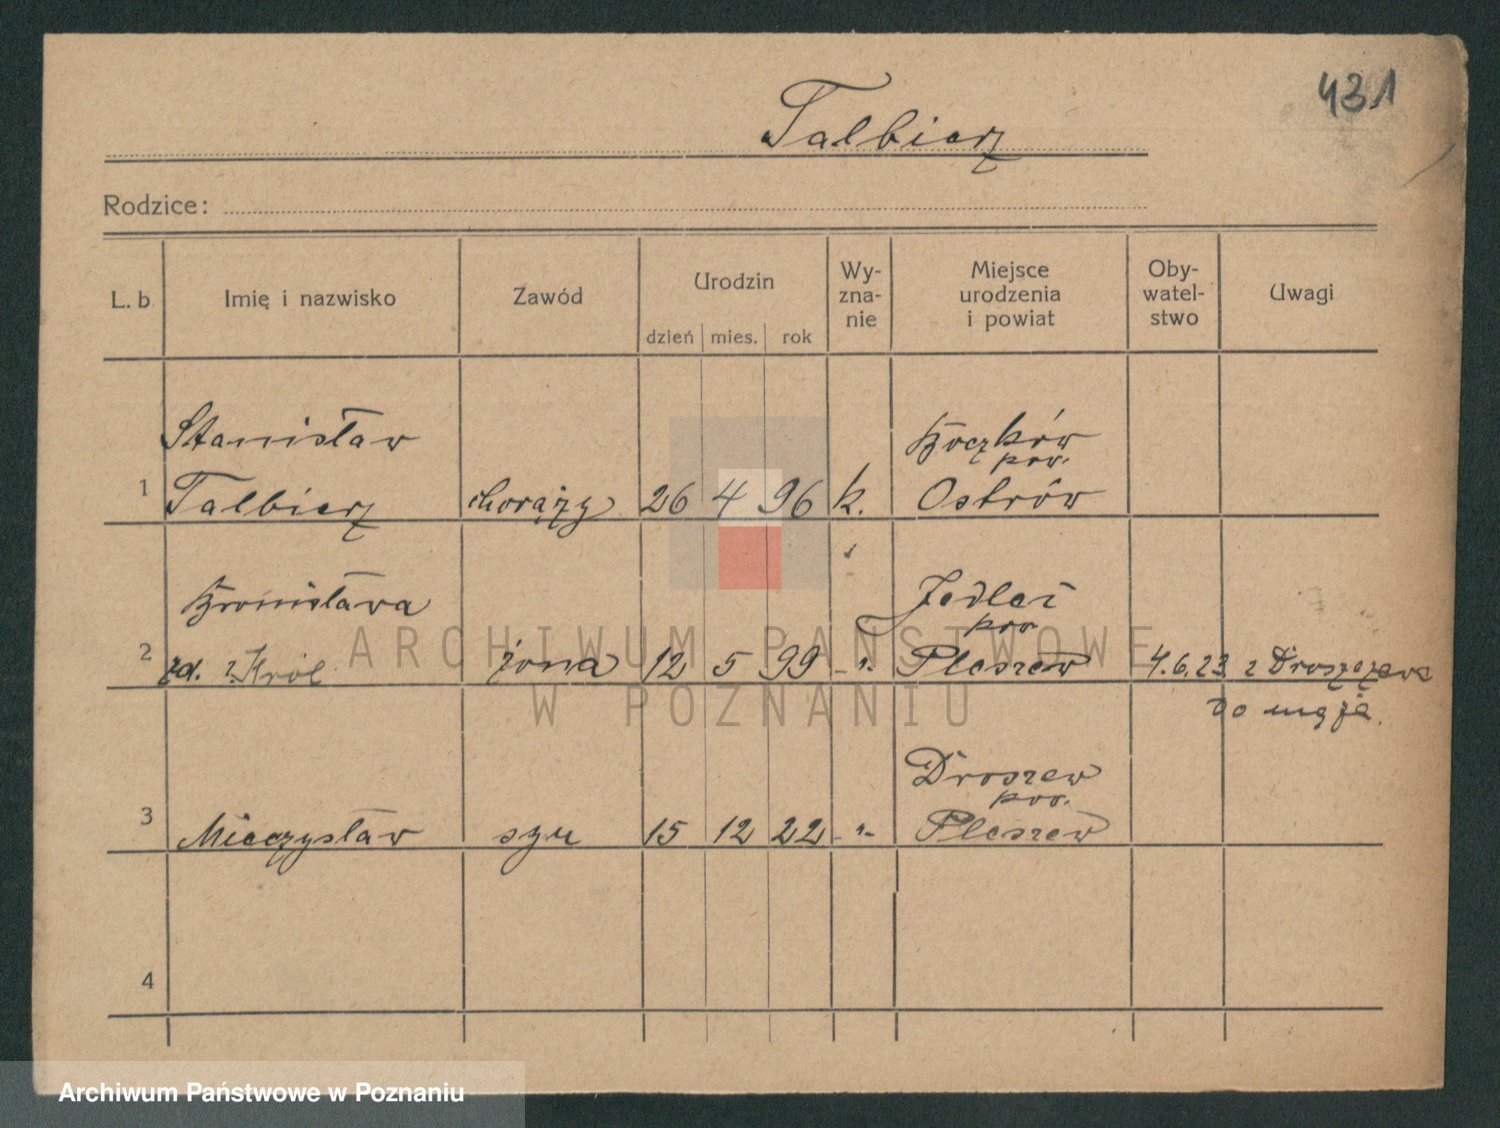 431
Talbierz
Rodzice:
L. b. Imię i nazwisko Zawód Urodzin Wy-zna-nie Miejsce urodzenia i powiat Oby-watel-stwo Uwagi
dzień mies. rok
Stanisław Boczków
pow.
1 Talbierz chorąży 26 4 96 k. Ostrów
Bronisława Jedlec
pow.
2 zd. z. Król żona 12 5 99 - " - Pleszew 4.6.23 z Droszczewa
do męża.
Droszew
pow.
3 Mieczysław syn 15 12 22 - " - Pleszew
4
ARCHIWUM PAŃSTWOWE
W POZNANIU
Archiwum Państwowe w Poznaniu